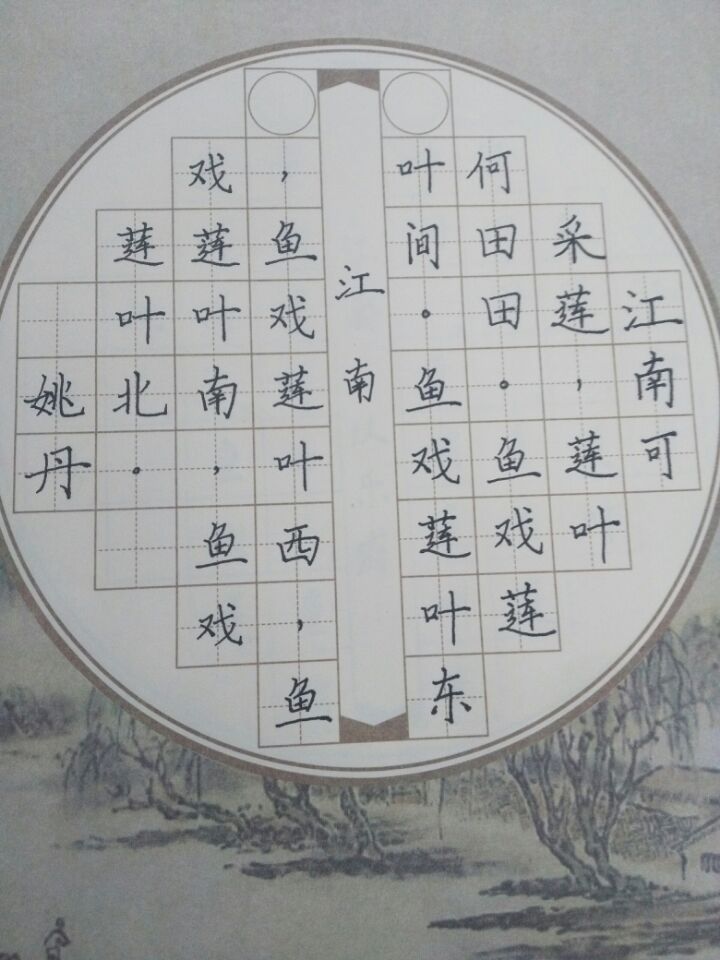 江南
江南可
采莲，莲叶
何田田。鱼戏莲
叶间。鱼戏莲叶东
，鱼戏莲叶西，鱼
戏莲叶南，鱼戏
莲叶北。
姚丹